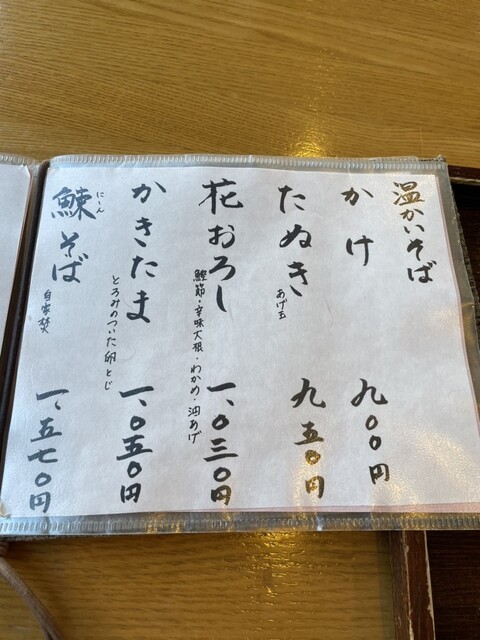 温かいそば
かけ 九〇〇円
たぬき あげ玉 九五〇円
花おろし 鰹節・辛味大根・わかめ・油あげ 一、〇三〇円
かきたま とろみのついた卵とじ 一、〇五〇円
鰊そば にしん 自家焚 一、五七〇円